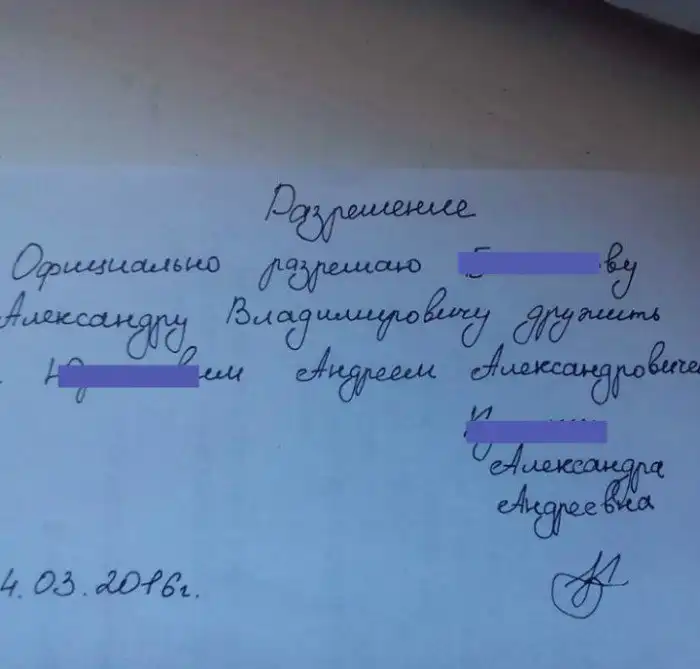 Разрешение
Официально разрешаю ву
Александру Владимировичу дружить
ем Андреем Александровичем
Александра
Андреевна
4.03.2016г.